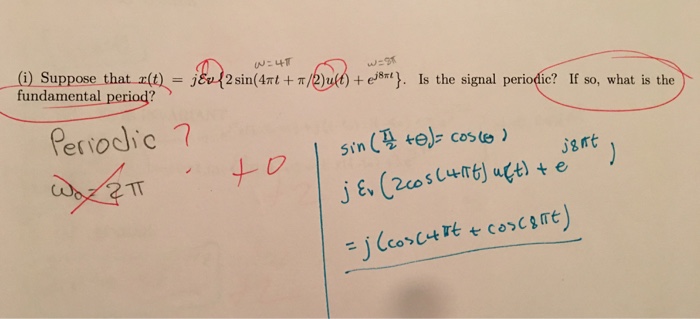 ω=4π ω=8π
(i) Suppose that x(t) = jEv{2 sin(4πt + π/2)u(t) + e^{j8πt}}. Is the signal periodic? If so, what is the
fundamental period?
Periodic ?
ω₀=2π
+0
sin(π/2 +θ)= cos(θ)
j Ev (2cos(4πt) u(t) + e^{j8πt})
= j(cos(4πt + cos(8πt)